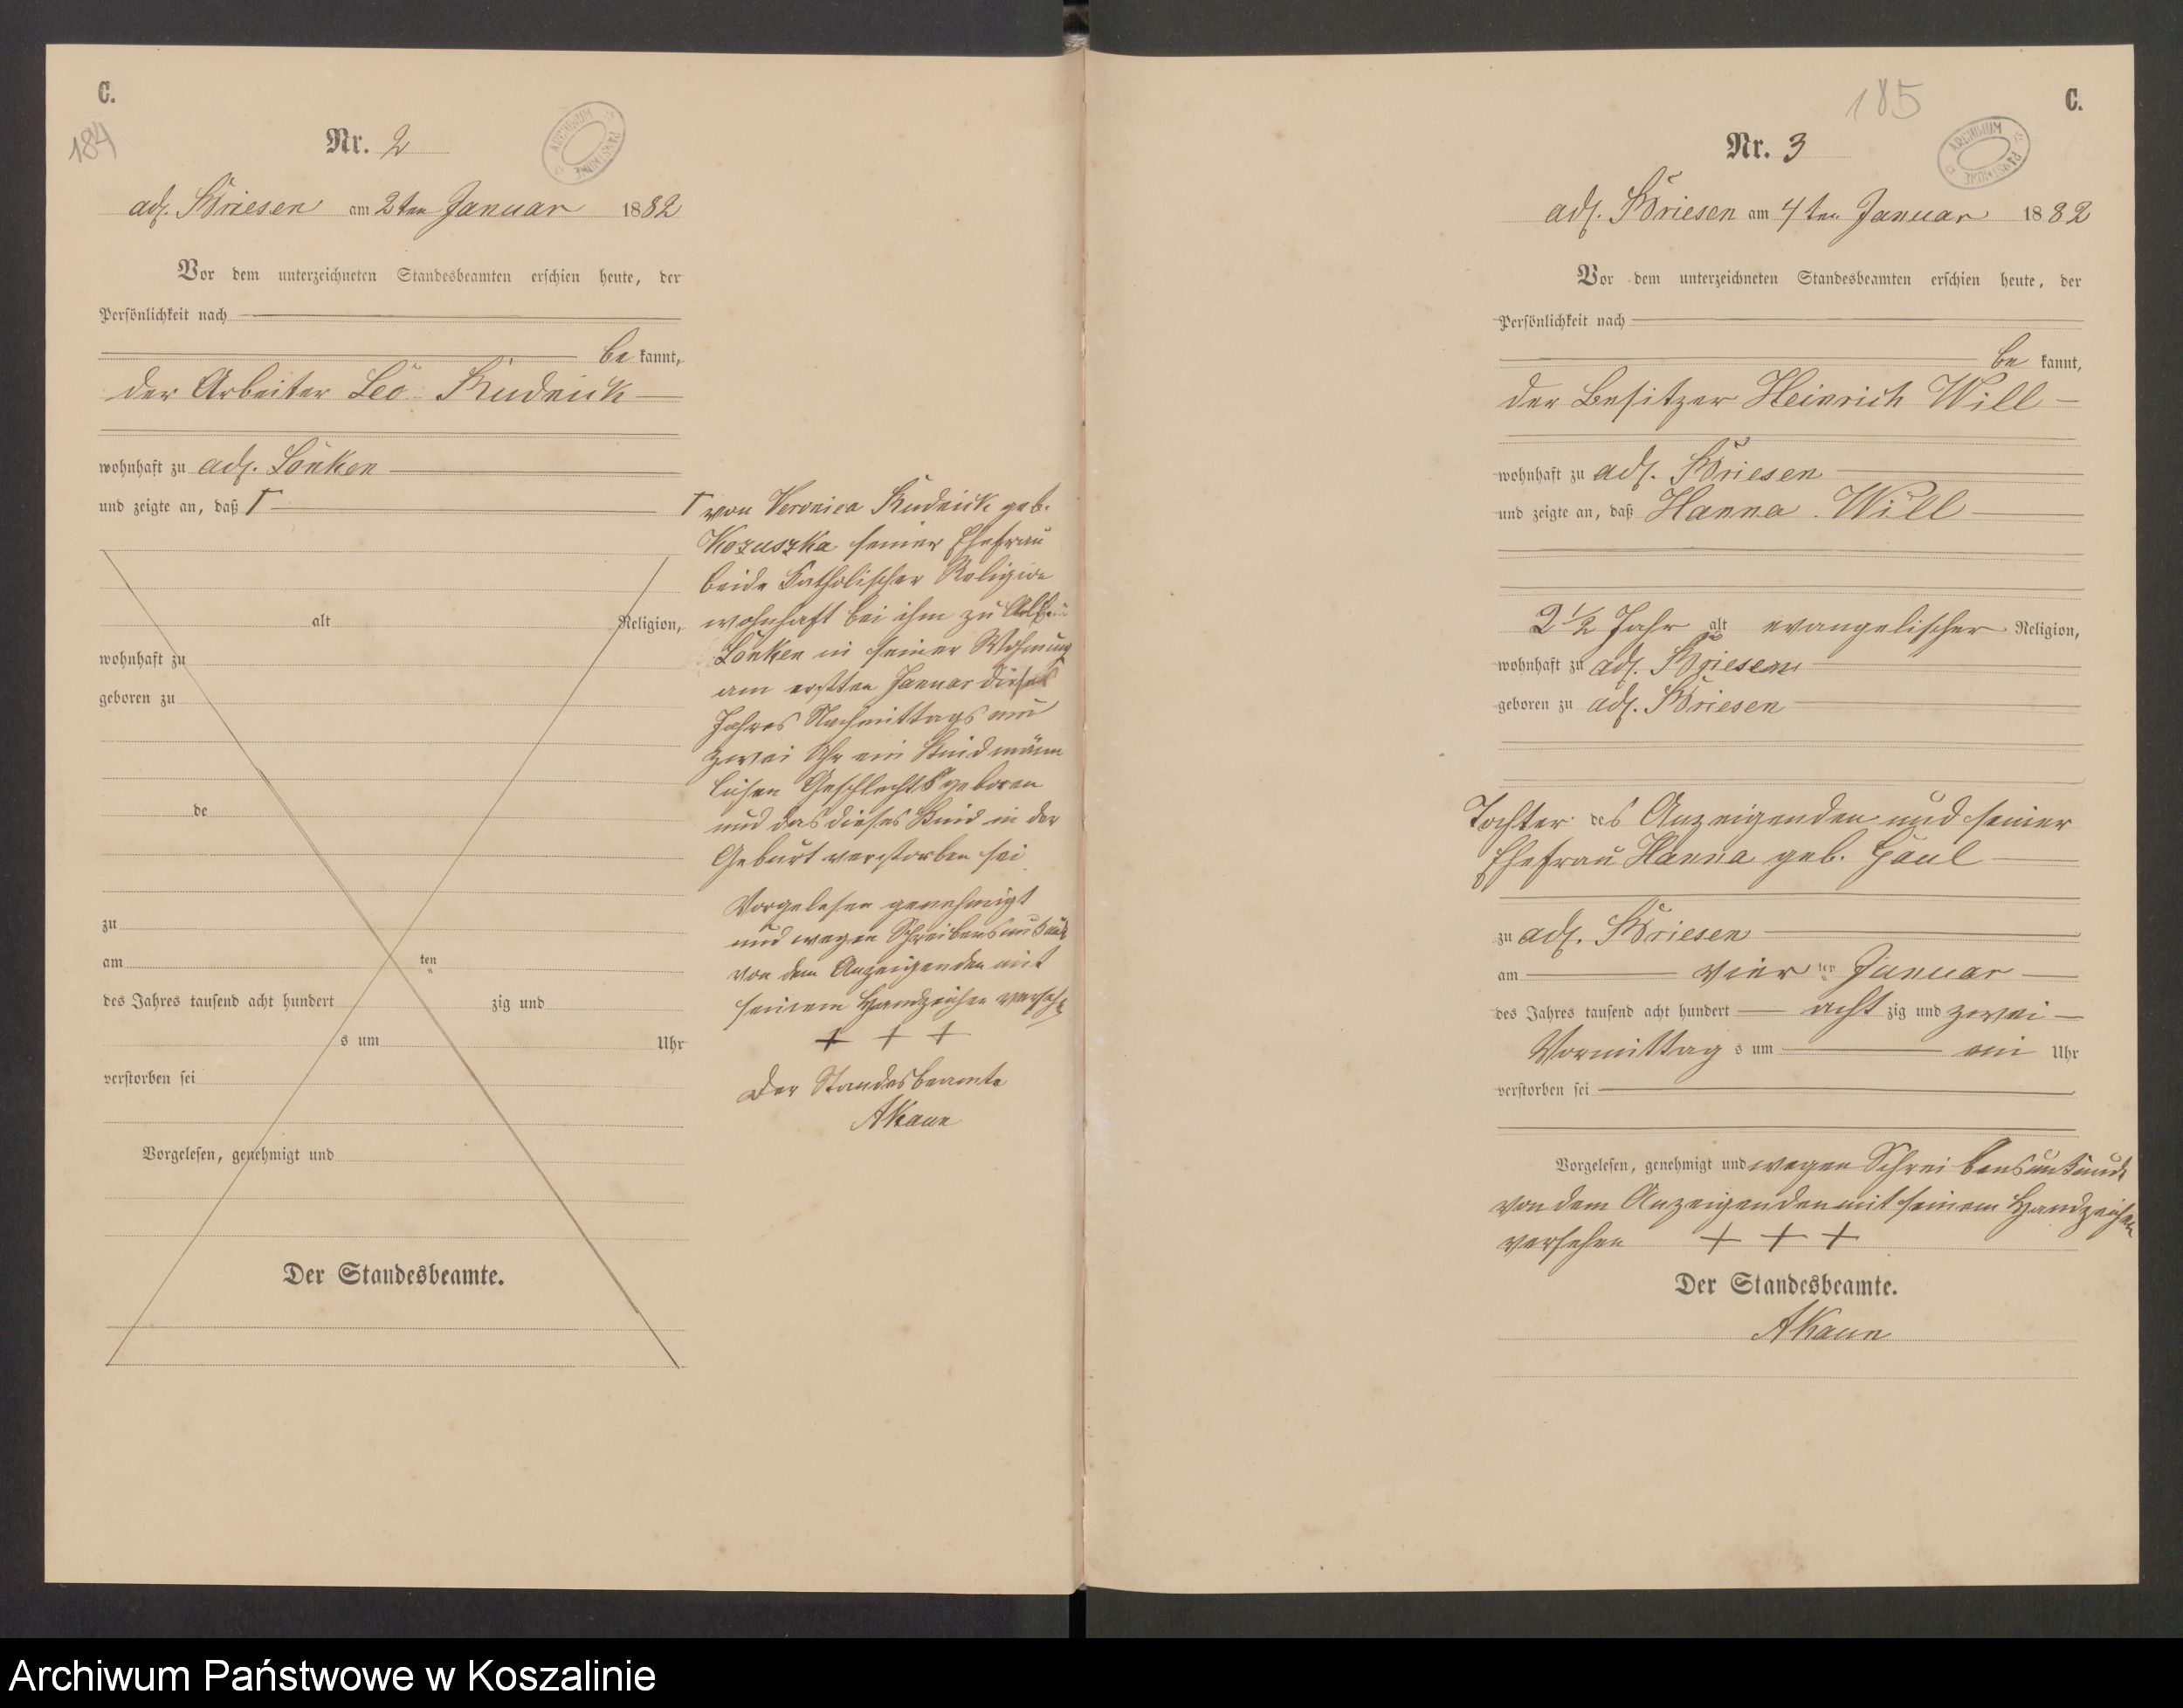 C.
184
Nr. 2
ARCHIWUM PAŃSTWOWE
adl. Briesen am 2ten Januar 1882
Vor dem unterzeichneten Standesbeamten erschien heute, der
Persönlichkeit nach
be kannt,
der Arbeiter Leo Rudnick
wohnhaft zu adl. Lonken
und zeigte an, daß Γ
alt Religion,
wohnhaft zu
geboren zu
de
zu
am ten
des Jahres tausend acht hundert zig und
s um Uhr
verstorben sei
Vorgelesen, genehmigt und
Der Standesbeamte.
Γ von Veronica Rudnick geb.
Kozuszka seiner Ehefrau
beide Katholischer Religion
wohnhaft bei ihm zu Adl.
Lonken in seiner Wohnung
am ersten Januar dieses
Jahres Nachmittags um
zwei Uhr ein Kind männ
lichen Geschlechts geboren
und das dieses Kind in der
Geburt verstorben sei
Vorgelesen genehmigt
und wegen Schreibensunkunde
von dem Anzeigenden mit
seinem Handzeichen versehn
+ + +
Der Standesbeamte
AKaun
185
C.
Nr. 3
ARCHIWUM PAŃSTWOWE
adl. Briesen am 4ten Januar 1882
Vor dem unterzeichneten Standesbeamten erschien heute, der
Persönlichkeit nach
be kannt,
der Besitzer Heinrich Will
wohnhaft zu adl. Briesen
und zeigte an, daß Hanna Will
2 1/2 Jahr alt evangelischer Religion,
wohnhaft zu adl. Briesen
geboren zu adl. Briesen
Tochter des Anzeigenden und seiner
Ehefrau Hanna geb. Gaul
zu adl. Briesen
am vier ten Januar
des Jahres tausend acht hundert acht zig und zwei
Vormittag s um ein Uhr
verstorben sei
Vorgelesen, genehmigt und wegen Schreibensunkunde
von dem Anzeigenden mit seinem Handzeichen
versehen + + +
Der Standesbeamte.
AKaun
Archiwum Państwowe w Koszalinie